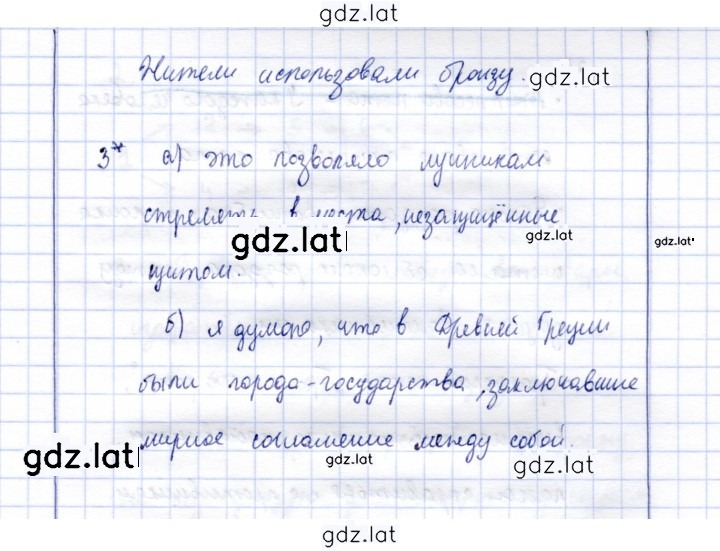 gdz.lat
Жители использовали бронзу.
gdz.lat
3* а) это позволяло лучникам
стрелять в места, незащищённые
gdz.lat
gdz.lat
щитом.
б) я думаю, что в Древней Греции
были города-государства, заключавшие
мирное соглашение между собой.
gdz.lat
gdz.lat
gdz.lat
gdz.lat